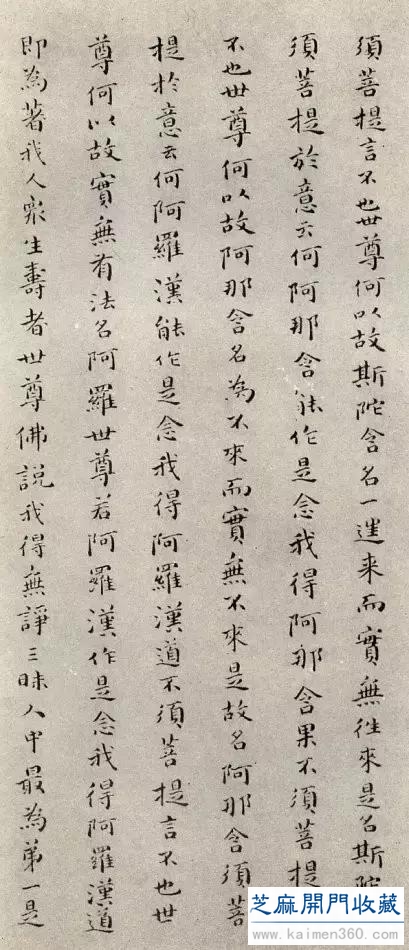 須菩提言不也世尊何以故斯陀含名一往来而實無往來是名斯陀
須菩提於意云何阿那含能作是念我得阿那含果不須菩提
不也世尊何以故阿那含名為不來而實無不來是故名阿那含須菩
提於意云何阿羅漢能作是念我得阿羅漢道不須菩提言不也世
尊何以故實無有法名阿羅世尊若阿羅漢作是念我得阿羅漢道
即為著我人衆生壽者世尊佛說我得無諍三昧人中最為第一是
芝麻開門收藏
www.kaimen360.com